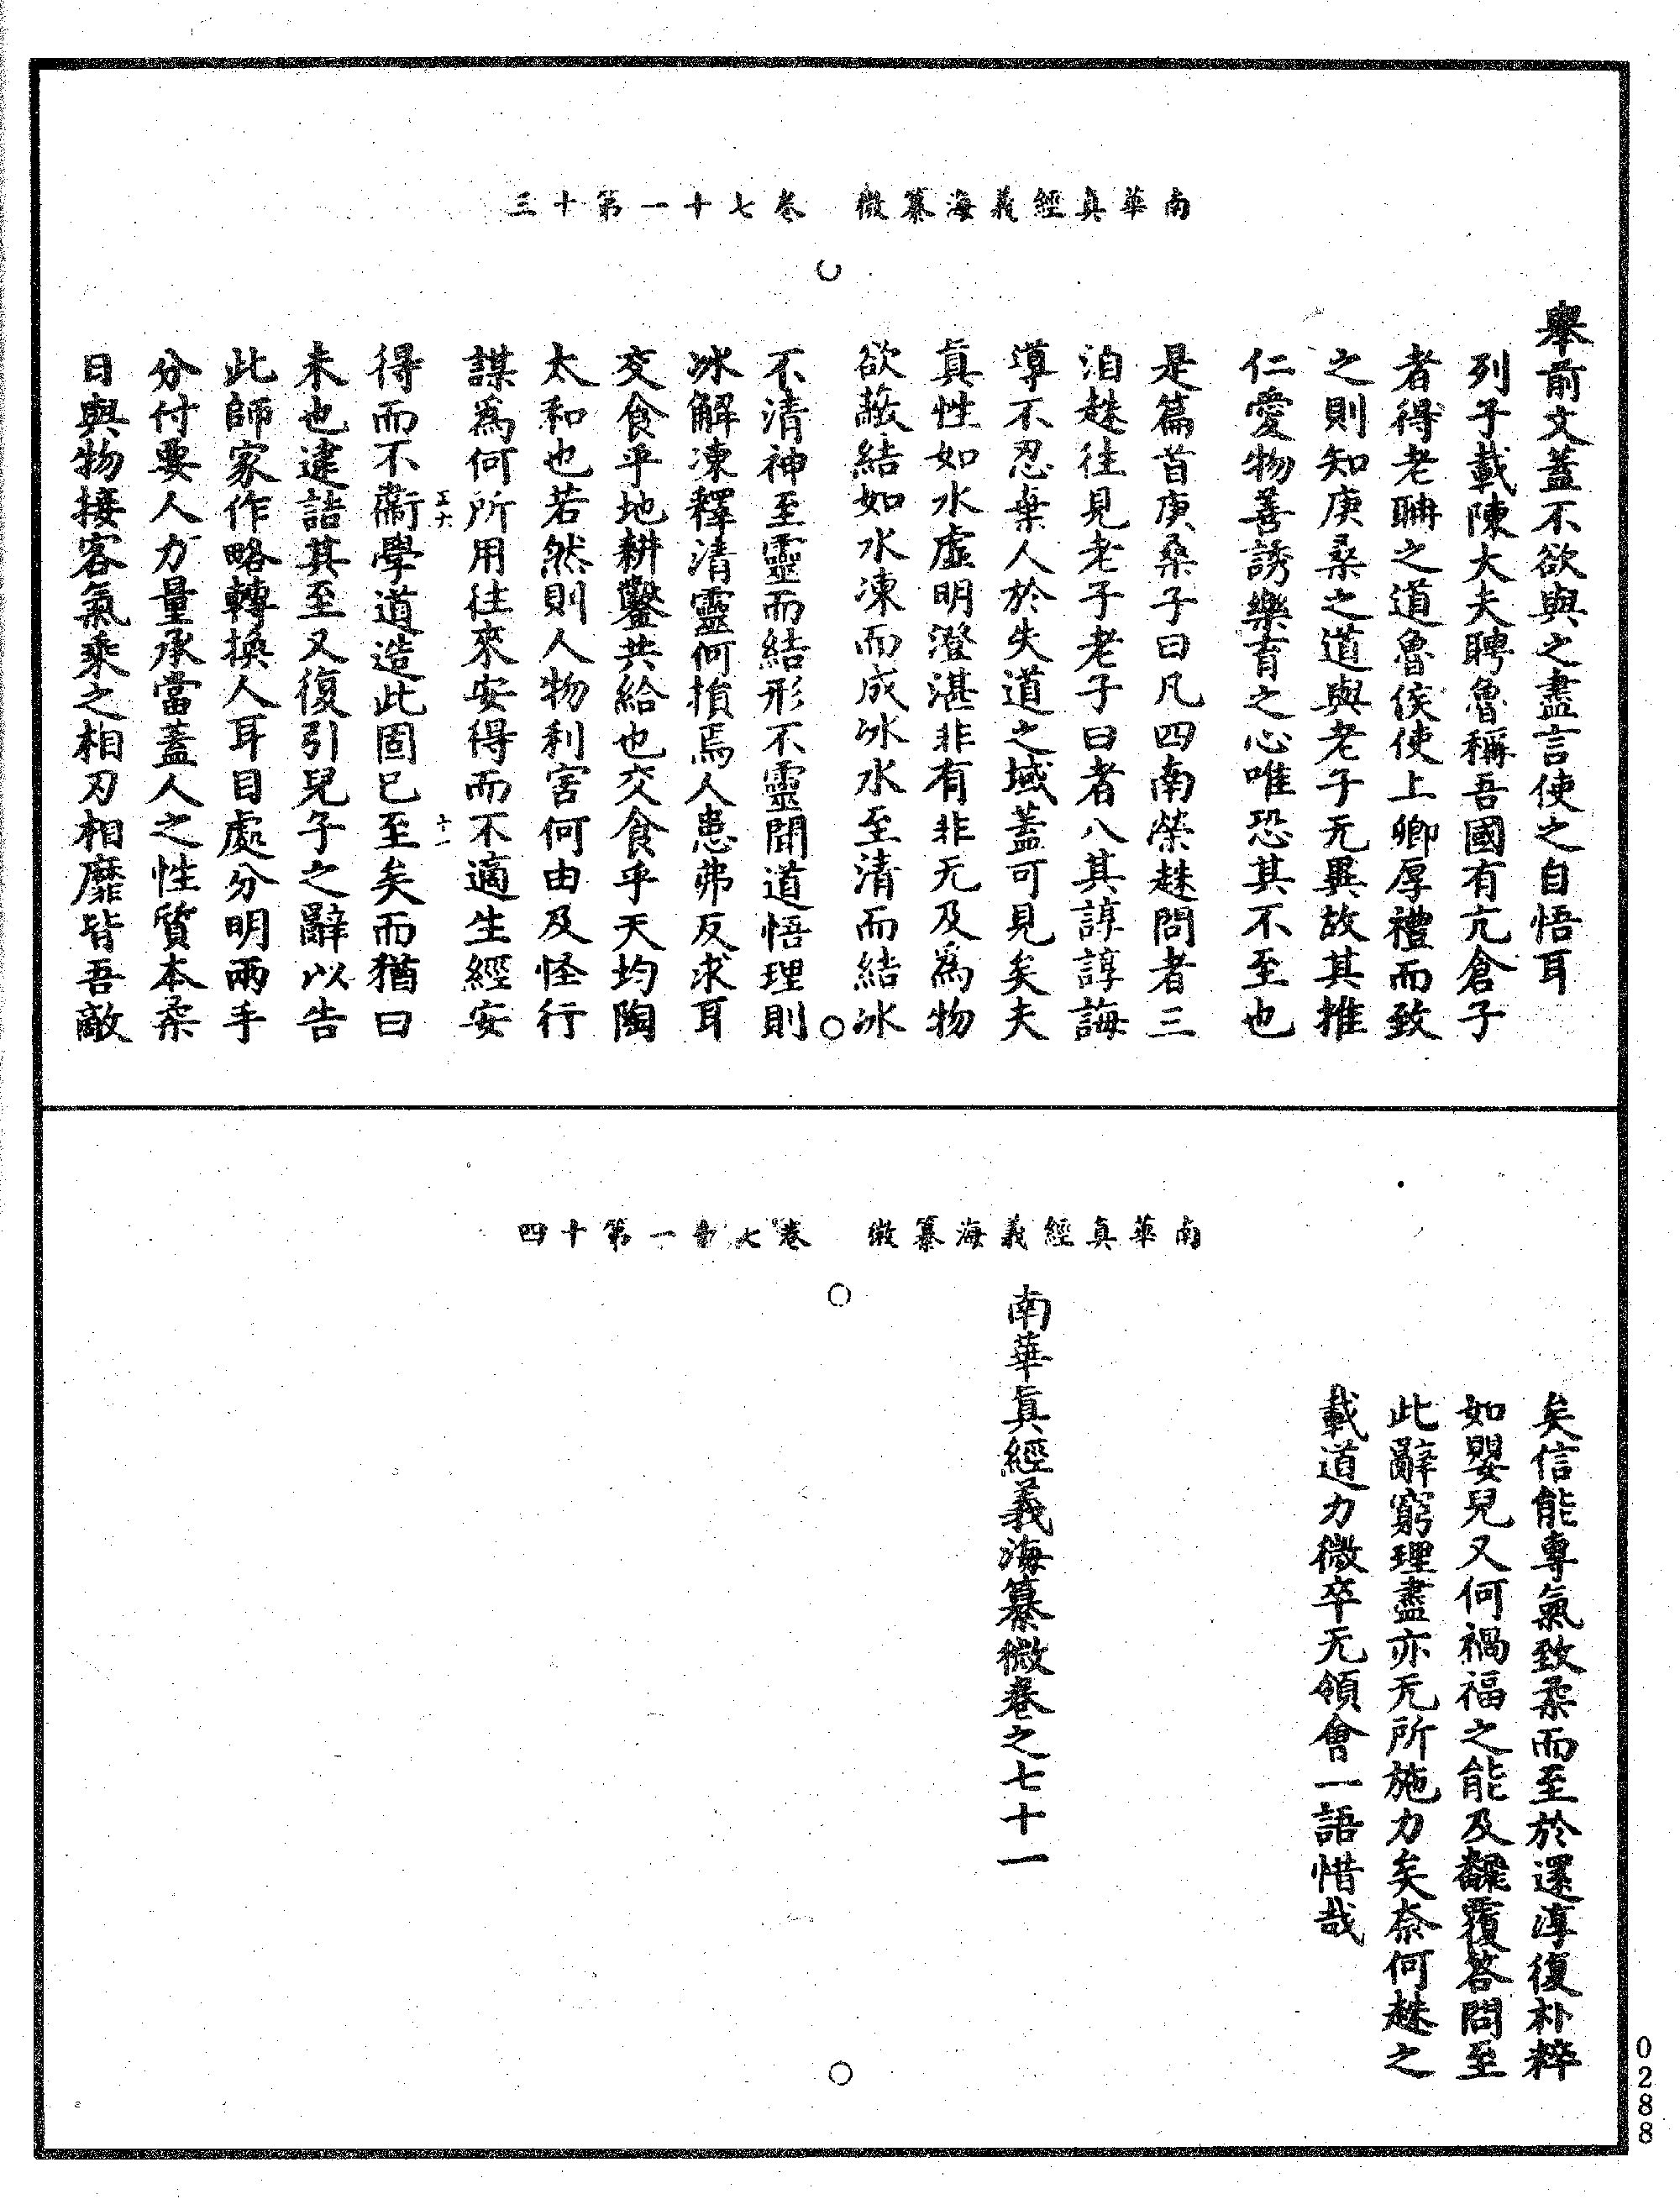 南華真經義海纂微　卷七十一第十三
舉前文蓋不欲與之盡言使之自悟耳
列子載陳大夫聘魯稱吾國有亢倉子
者得老聃之道魯侯使上卿厚禮而致
之則知庚桑之道與老子无異故其推
仁愛物善誘樂育之心唯恐其不至也
是篇首庚桑子曰凡四南榮趎問者三
洎趎往見老子老子曰者八其諄諄誨
導不忍棄人於失道之域蓋可見矣夫
真性如水虛明澄湛非有非无及爲物
欲蔽結如水凍而成冰水至清而結冰
不清神至靈而結形不靈聞道悟理則
冰解凍釋清靈何損焉人患弗反求耳
交食乎地耕鑿共給也交食乎天均陶
太和也若然則人物利害何由及怪行
謀爲何所用往來安得而不適生經安
得而不衞學道造此固已至矣而猶曰
未也逮詰其至又復引兒子之辭以告
此師家作略轉換人耳目處分明兩手
分付要人力量承當蓋人之性質本柔
日與物接客氣乘之相刃相靡皆吾敵
南華真經義海纂微　卷七十一第十四
矣信能專氣致柔而至於還淳復朴粹
如嬰兒又何禍福之能及飜覆答問至
此辭窮理盡亦无所施力矣奈何趎之
載道力微卒无領會一語惜哉
南華真經義海纂微卷之七十一
0288